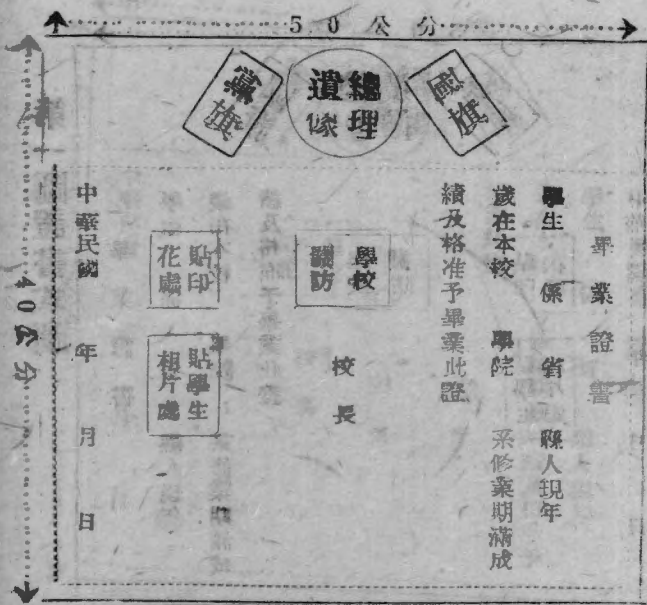 50公分
國旗
總理
遺像
黨旗
畢業證書
學生 係 省 縣人現年
歲在本校 學院 系修業期滿成
績及格准予畢業此證
學校
關防
校長
貼印
花處
貼學生
相片處
中華民國 年 月 日
40公分